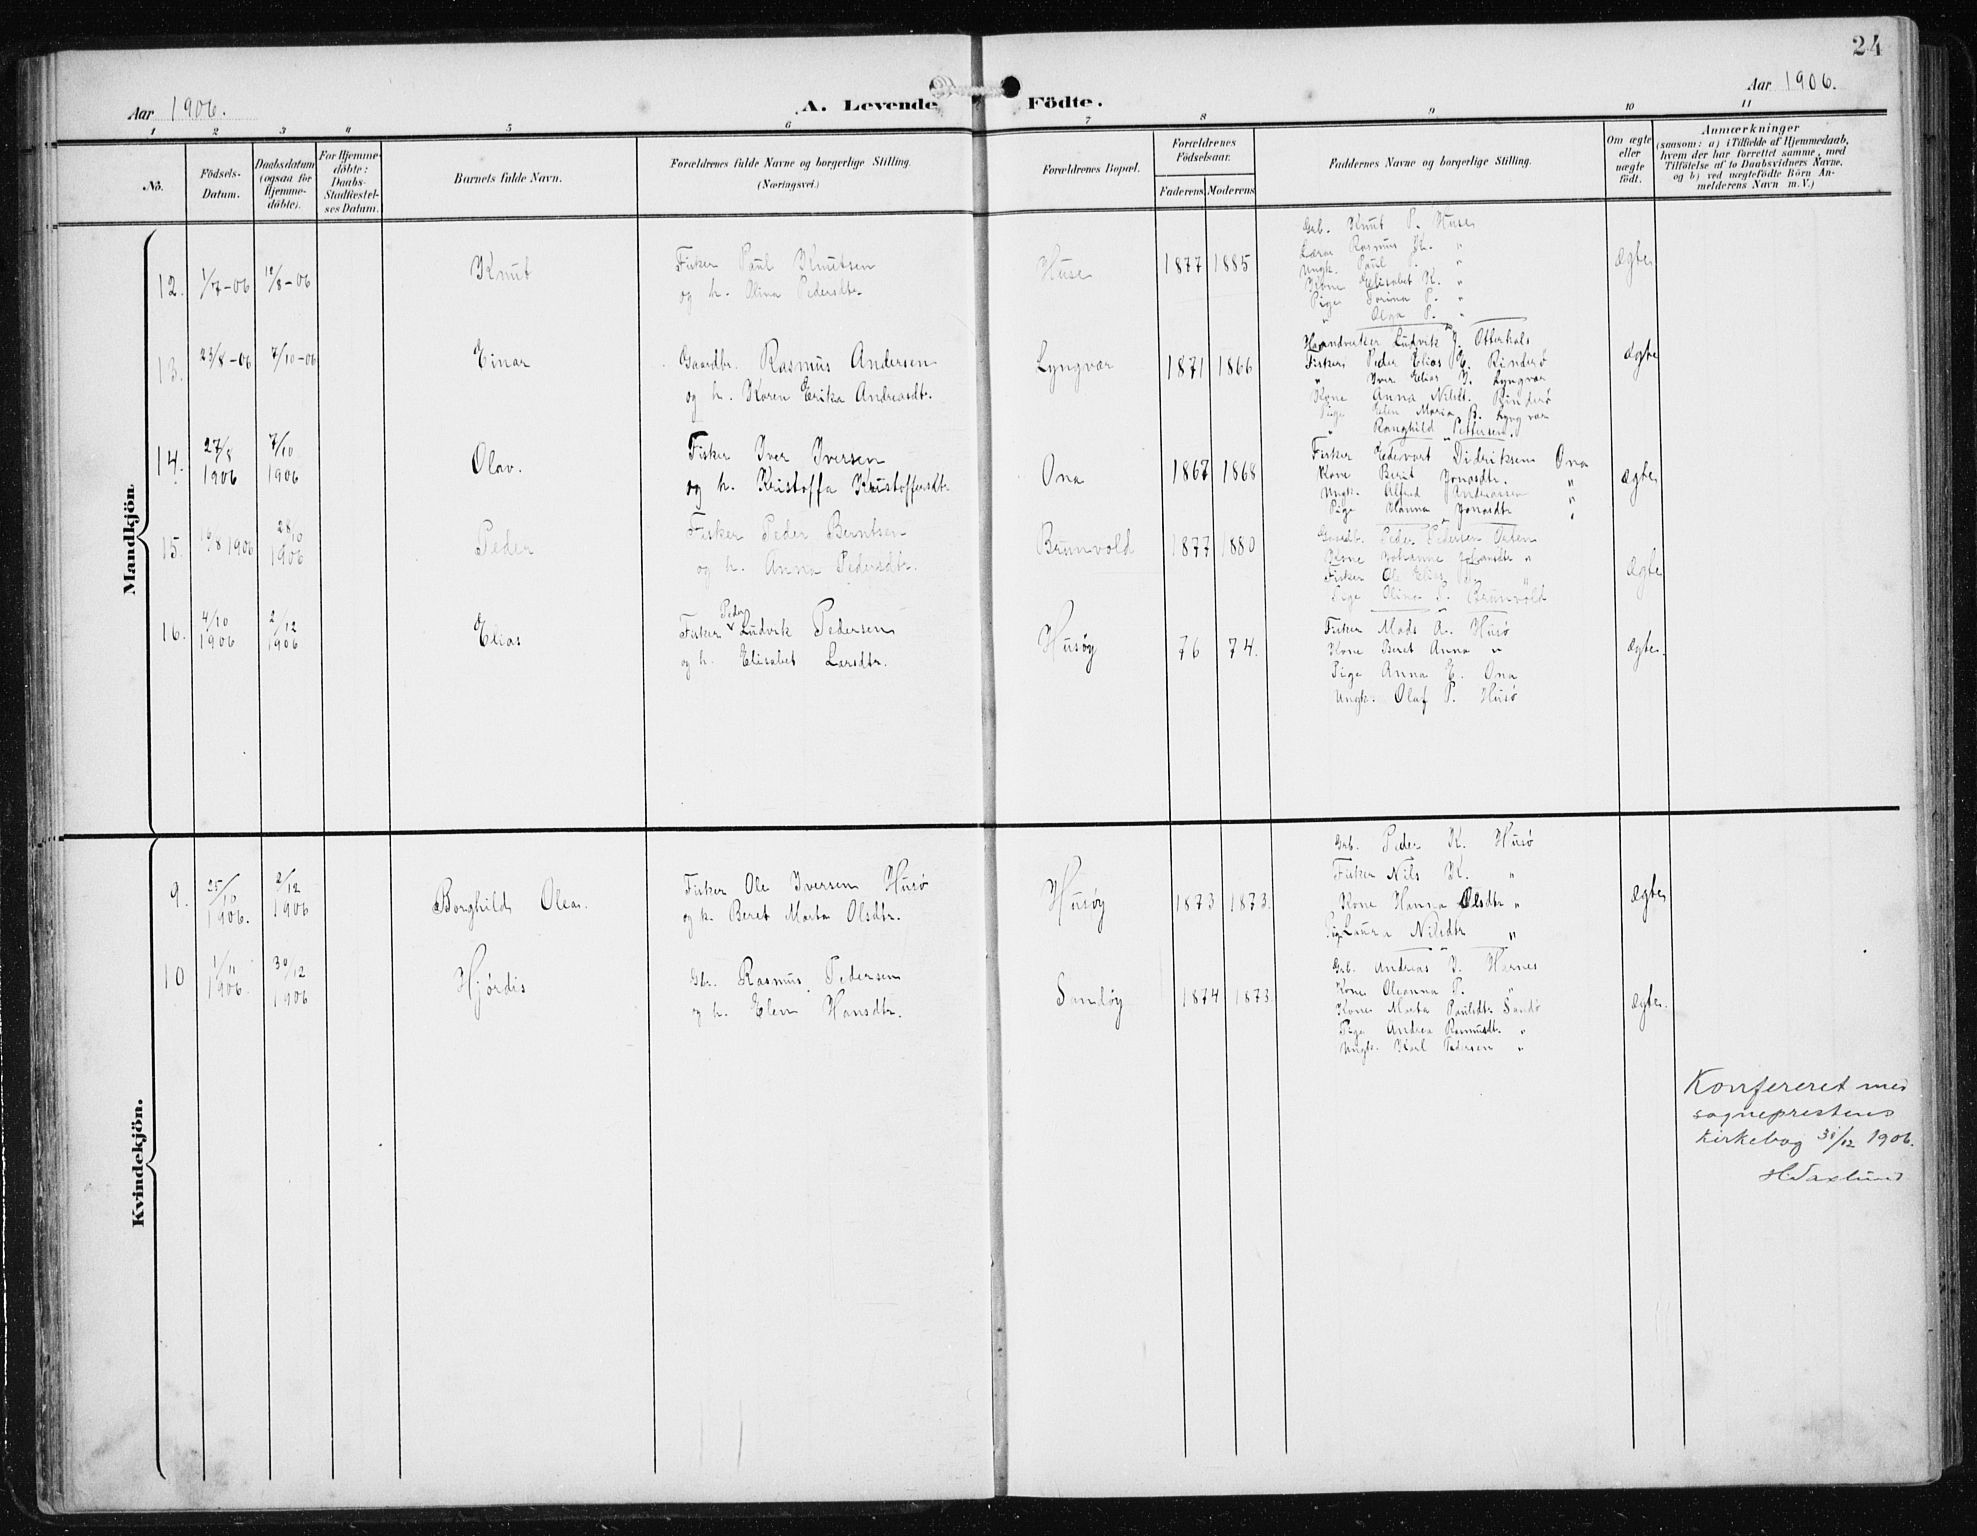 24
Aar 1906.
A. Levende Födte.
Aar 1906.
1 2 3 4 5 6 7 8 9 10 11
No.
Födsels-
Datum.
Daabsdatum
(ogsaa for
Hjemme-
döbte).
For Hjemme-
döbte:
Daabs-
Stadfæstel-
ses Datum.
Barnets fulde Navn.
Forældrenes fulde Navne og borgerlige Stilling.
(Næringsvei.)
Forældrenes Bopæl.
Forældrenes
Födselsaar.
Faderens Moderens
Faddernes Navne og borgerlige Stilling.
Om ægte
eller
uægte
födt.
Anmærkninger
(saasom: a) i Tilfælde af Hjemmedaab,
hvem der har forrettet samme, med
Tilföielse af to Daabsvidners Navne,
og b) ved uægtefödte Börn An-
melderens Navn m. V.)
Mandkjön.
12. 1/7-06 12/8-06 Knut
Fisker Paul Knutsen
og h. Olina Pedersdtr.
Huse 1877 1885
Grb. Knut P. Huse
Lærer Rasmus K. "
Ungk. Paul P. "
Kone Elisabet K. "
Pige Torina P. "
" Olga P. "
ægte
13. 23/8-06 7/10-06 Einar
Gaardbr. Rasmus Andersen
og h. Karen Erika Andreasdtr.
Lyngvær 1871 1866
Haandverker Ludvik J. Otterhals
Fisker Peder Elias E. Rinderö
" Iver Elias I. Lyngvær
Kone Anna Nilsdt. Rinderö
Pige Elen Maria B. Lyngvær
" Ranghild Pettersen "
ægte
14. 27/8 1906 7/10 1906 Olav.
Fisker Iver Iversen
og h. Kristoffa Kristoffersdtr.
Ona 1867 1868
Fisker Edevart Didriksen Ona
Kone Berit Jonasdtr. "
Ungk. Alfred Andreassen "
Pige Hanna Jonasdtr "
ægte
15. 16/8 1906 28/10 1906 Peder
Fisker Peder Berntsen
og h. Anna Pedersdtr.
Brunvold 1877 1880
Gaardb. Peder Pedersen
Kone Johanne Johansdtr "
Fisker Ole Elias P. "
Pige Olina P. Brunvold
ægte
16. 4/10 1906 2/12 1906 Elias
Fisker Peder Ludvik Pedersen
og h. Elisabet Larsdtr.
Husøy 76 74.
Fisker Mads A. Husö
Kone Beret Anna "
Pige Anna E. Ona
Ungk. Olaf P. Husö
ægte.
Kvindekjön.
9. 25/10 1906. 2/12 1906 Borghild Olea.
Fisker Ole Iversen Husö
og h. Beret Marta Olsdtr.
Husøy 1873 1873.
Grb. Peder K. Husö
Fisker Nils K. "
Kone Hanna Olsdtr "
Pige Laura Nilsdtr "
ægte
10 1/11 1906. 30/12 1906 Hjördis
Gbr. Rasmus Pedersen
og h. Elen Hansdtr.
Sandøy 1874 1873.
Grb. Andreas I. Harnes
Kone Oleanna P. "
Kone Marta Paulsdtr Sandö
Pige Andrea Rasmusdt. "
Ungk. Karl Pedersen "
ægte.
Konfereret med
sogneprestens
kirkebog 31/12 1906.
H. Saxlund